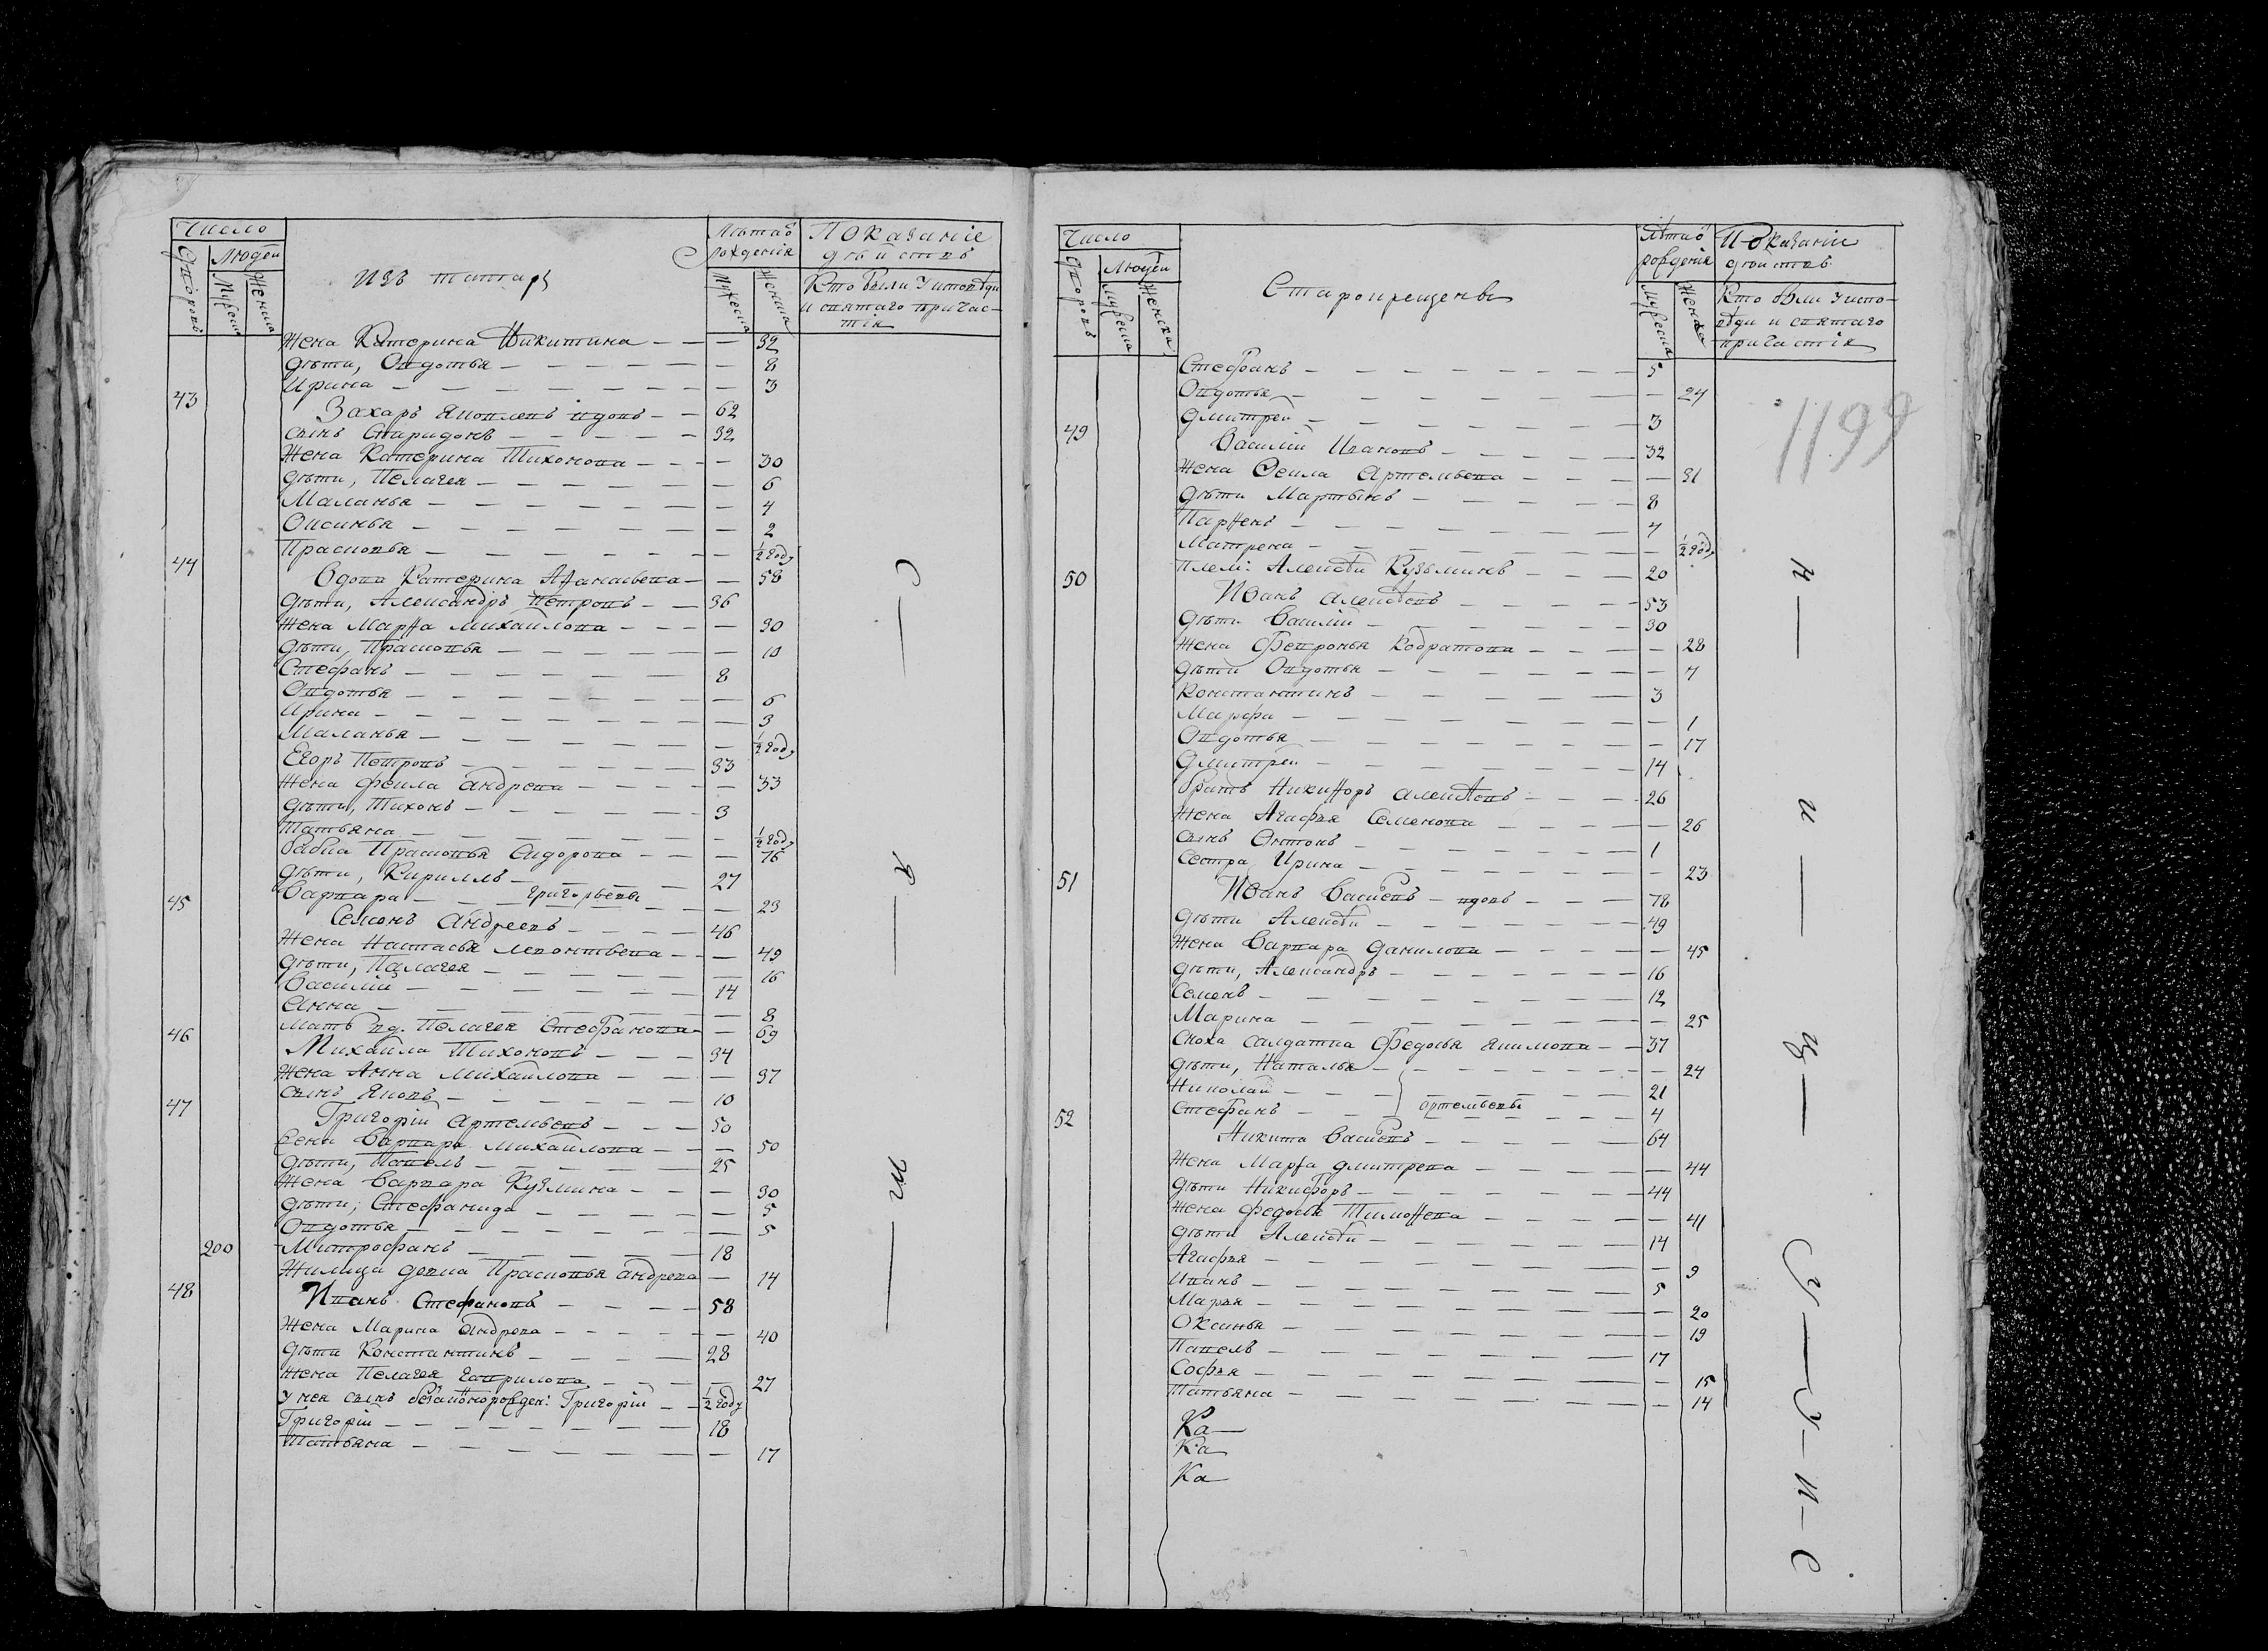 Число
Дворовъ
Людей
Мужеска
Женска
Изъ татаръ
Лѣта ѿ рожденія
Мужеска
Женска
Показаніе дѣйствъ
Кто были у исповѣди и святаго причастія
Жена Катерина Никитина — 32
дѣти, Овдотья — 8
Ирина — 3
43
Захаръ Яковлевъ вдовъ — 62
сынъ Спиридонъ — 32
Жена Катерина Тихонова — 30
дѣти, Пелагея — 6
Маланья — 4
Оксинья — 2
Прасковья — ½ году
44
Вдова Катерина Афанасьева — 58
дѣти, Александръ Петровъ — 36
Жена Марѳа Михайлова — 30
дѣти, Прасковья — 10
Стефанъ — 8
Овдотья — 6
Ирина — 3
Маланья — ½ году
Егоръ Петровъ — 33
Жена Фекла Андрева — 33
дѣти, Тихонъ — 3
Татьяна — ½ году
Бабка Прасковья Сидорова — 76
дѣти, Кириллъ — 27
Варвара — Григорьевы — 23
45
Семенъ Андреевъ — 46
Жена Настасья Леонтьева — 49
дѣти, Палагея — 16
Василій — 14
Анна — 8
Мать вд. Пелагея Стефанова — 69
46
Михайла Тихоновъ — 34
Жена Анна Михайлова — 37
сынъ Яковъ — 10
47
Григорій Артемьевъ — 50
Жена Варвара Михайлова — 50
дѣти, Павелъ — 25
Жена Варвара Кузмина — 30
дѣти; Стефанида — 5
Овдотья — 5
200
Митрофанъ — 18
Жилица девка Прасковья Андрева — 14
48
Иванъ Стефановъ — 58
Жена Марина Андрева — 40
дѣти Константинъ — 28
Жена Пелагея Гаврилова — 27
у нея сынъ незаконорожден: Григорій — ½ году
Григорій — 18
Татьяна — 17
С — я — т
Число
Дворовъ
Людей
Мужеска
Женска
Старокрещены
Лѣта ѿ рожденія
Мужеска
Женска
Показаніи дѣйствъ
Кто были у исповѣди и святаго причастія
1199
Стефанъ — 5
Овдотья — 24
Дмитрей — 3
49
Василій Ивановъ — 32
Жена Ѳекла Артемьева — 31
дѣти Мартынъ — 8
Парѳенъ — 7
Матрена — ½ году
плем: Алексѣй Кузьминъ — 20
50
Иванъ Алексѣевъ — 53
дѣти Василій — 30
Жена Февронья Кодратова — 28
дѣти Овдотья — 7
Константинъ — 3
Марфа — 1
Овдотья — 17
Дмитрей — 14
братъ Никиѳоръ Алексѣевъ — 26
Жена Агафья Семенова — 26
сынъ Антонъ — 1
Сестра Ирина — 23
51
Иванъ Васильевъ — вдовъ — 78
дѣти Алексѣй — 49
Жена Варвара Данилова — 45
дѣти, Александръ — 16
Семенъ — 12
Марина — 25
Сноха салдатка Федосья Якимова — 37
дѣти, Наталья — 24
Николай — 21
Стефанъ — Артемьевы — 4
52
Никита Васильевъ — 64
Жена Марѳа Дмитрева — 44
дѣти Никифоръ — 44
Жена Федосья Тимоѳева — 41
дѣти Алексѣй — 14
Агафья — 9
Иванъ — 5
Марья — 20
Оксинья — 19
Павелъ — 17
Софья — 15
Татьяна — 14
Ка
Ка
Ка